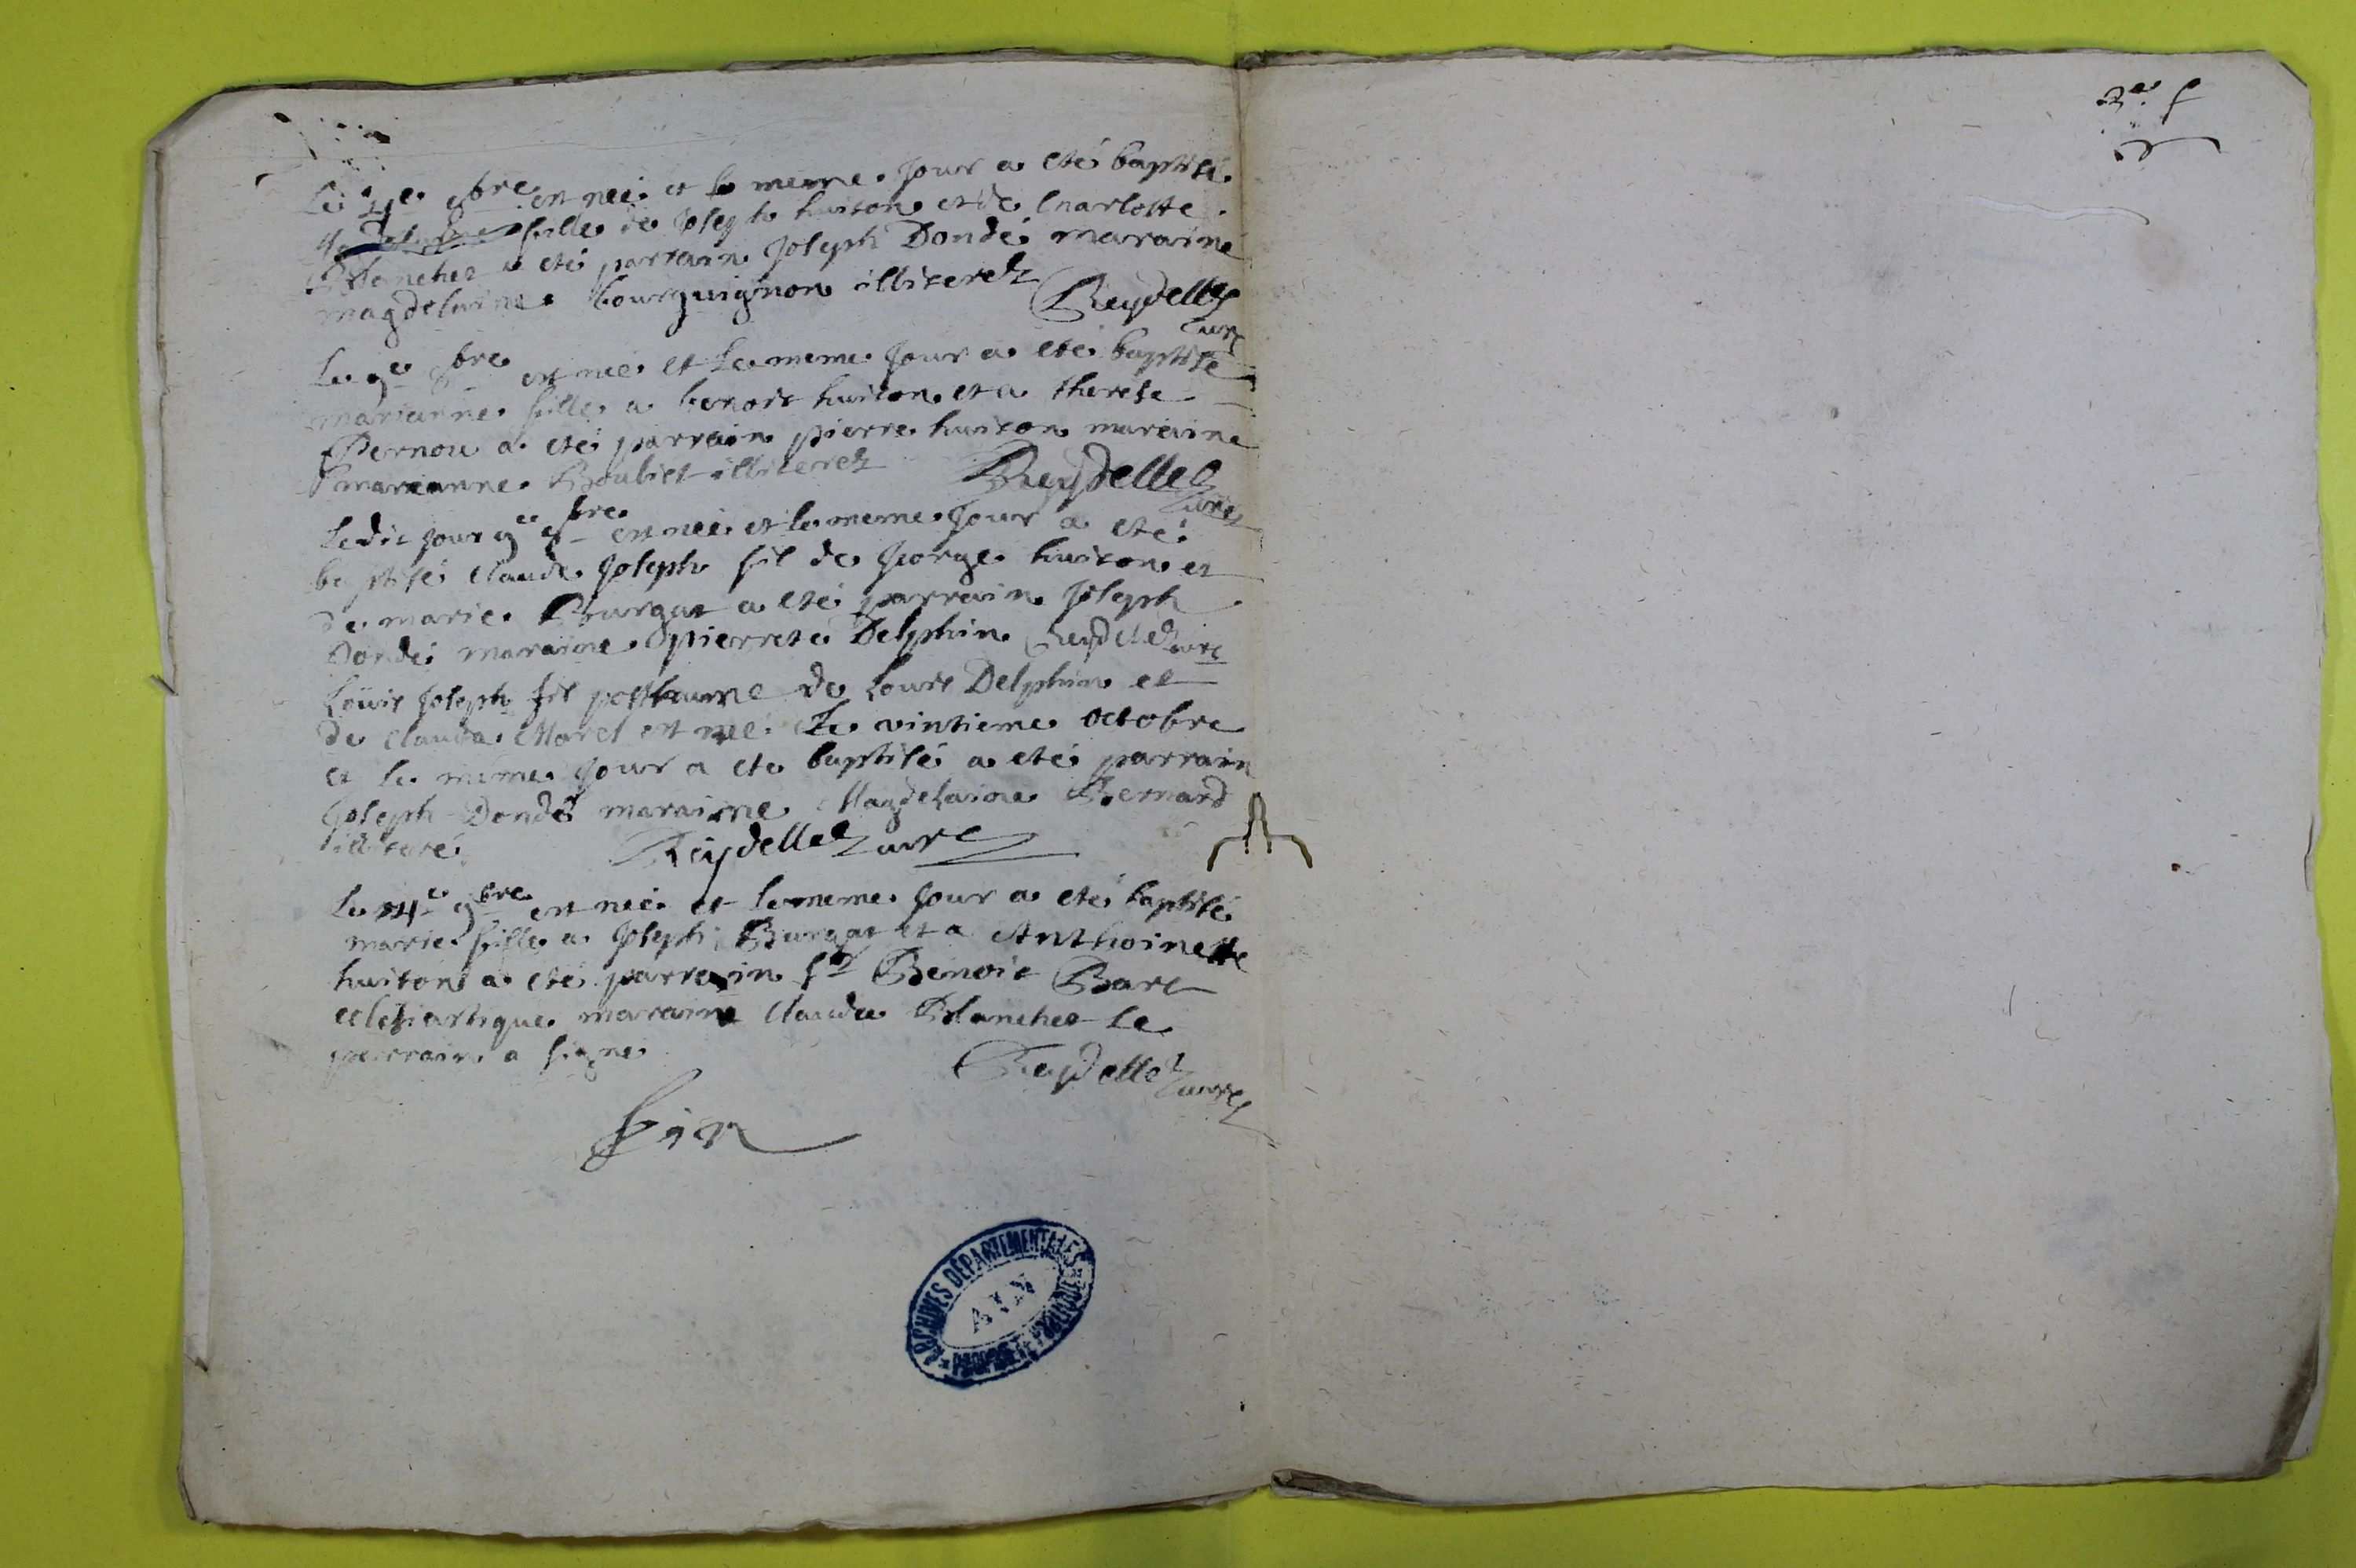 Le 4e 9bre est neé et le meme Jour a eté baptisé
fille de Joseph huiton et de Charlotte
Blanchet a eté parrain Joseph Dondé maraine
magdelaine bourguignon illiterez Reydellet
curé
Le 9e 8bre est neé et Le meme Jour a eté baptisé
marianne fille a benoit huiton et a therese
Pernou a eté parrain pierre huiton maraine
marianne Boubiet illiterez Reydellet
curé
Ledit jour 9e 8bre est neé et le meme Jour a eté
baptisé claude Joseph fil de George huiton et
de marie Burgat a eté parrain Joseph
Dondé maraine pierrete Delphin Reydellet curé
Louis Joseph fil postume de Louis Delphin et
de clauda Morel est neé Le vintieme octobre
et le meme Jour a ete baptisé a eté parrain
Joseph Dondé maraine Magdelaine Bernard
illiteré Reydellet curé
Le 4e 9bre est neé et le meme Jour a eté baptisé
marie fille a Joseph Burgat et a Anthoinette
huiton a eté parrain Sr Benoit Barl
eclesiastique maraine clauda Blanchet Le
parrain a signé Reydellet curé
fin
ARCHIVES DÉPARTEMENTALES
AIN